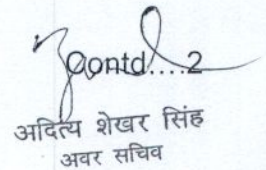 Contd....2
आदित्य शेखर सिंह
अवर सचिव